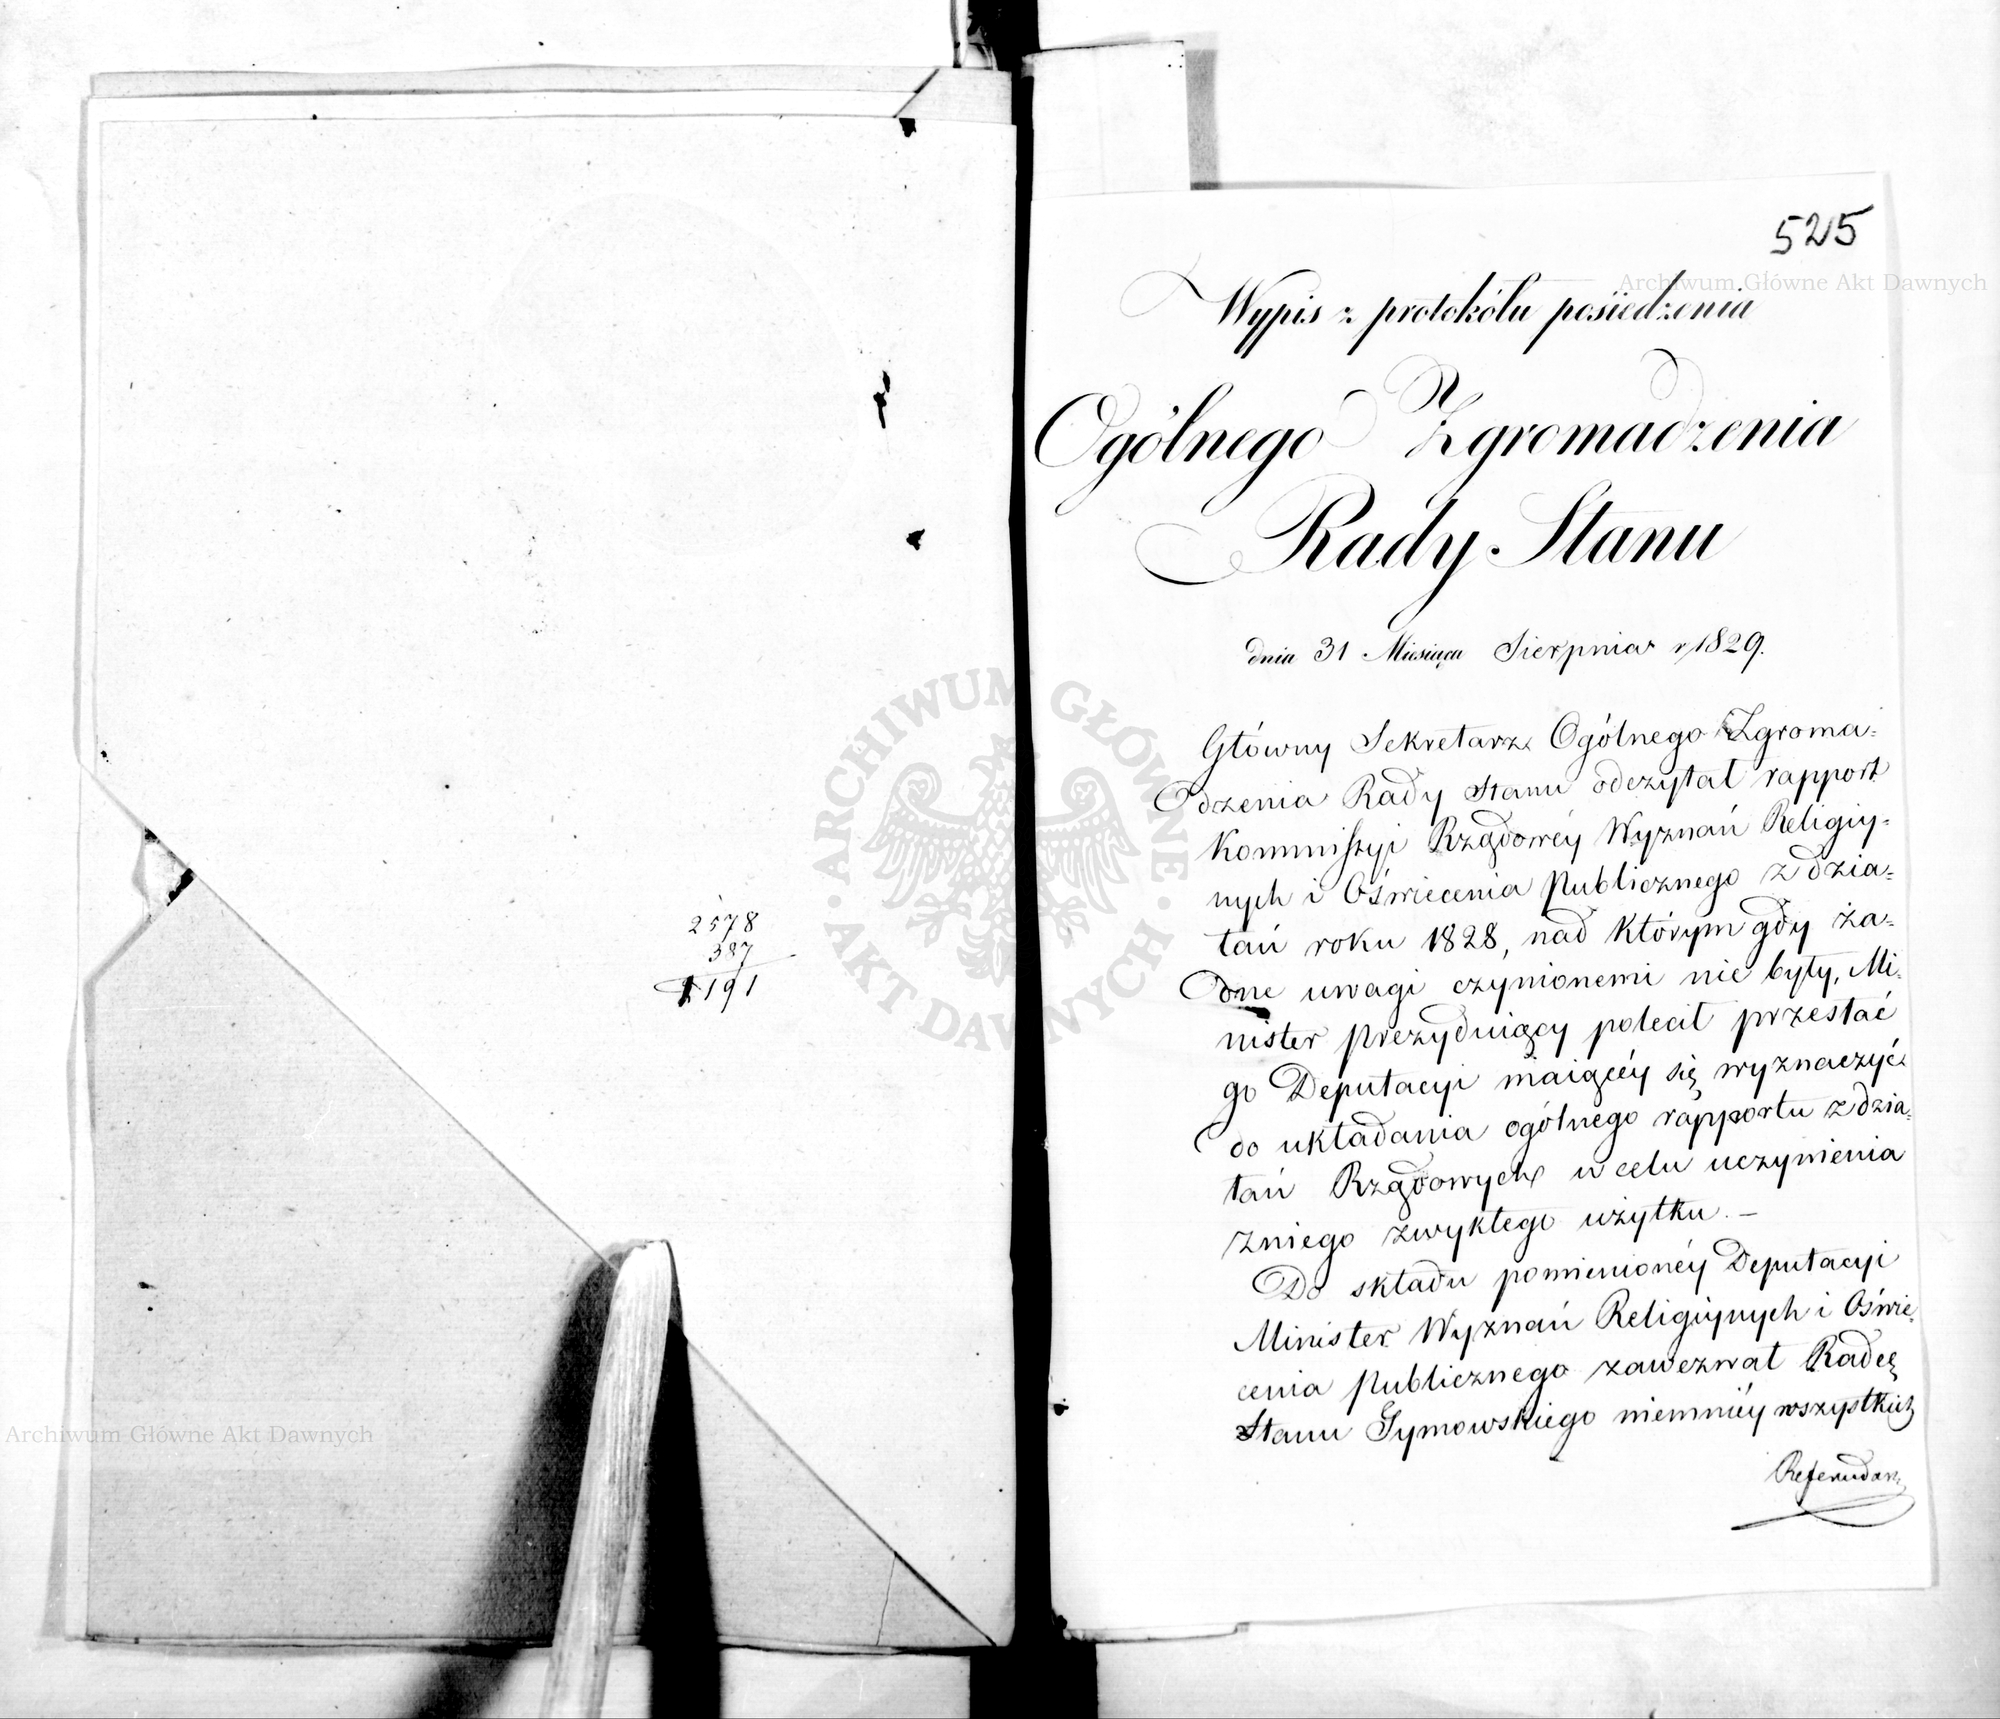 2578
387
2191
525
Wypis z protokólu posiedzenia
Ogólnego Zgromadzenia
Rady Stanu
dnia 31 Miesiąca Sierpnia r, 1829.
Główny Sekretarz Ogólnego Zgroma-
dzenia Rady Stanu odczytał rapport
Kommissyi Rządowéy Wyznań Religiy-
nych i Oświecenia Publicznego z dzia-
łań roku 1828, nad którym gdy ża-
dne uwagi czynionemi nie były, Mi-
nister Prezyduiący polecił przesłać
go Deputacyi maiącéy się wyznaczyć
do układania ogólnego rapportu z dzia-
łań Rządowych w celu uczynienia
z niego zwykłego użytku. —
Do składu pomienionéy Deputacyi
Minister Wyznań Religiynych i Oświe-
cenia Publicznego zawezwał Radcę
Stanu Tymowskiego niemniéy wszystkich
Referendar,
Archiwum Główne Akt Dawnych
ARCHIWUM GŁÓWNE AKT DAWNYCH
Archiwum Główne Akt Dawnych